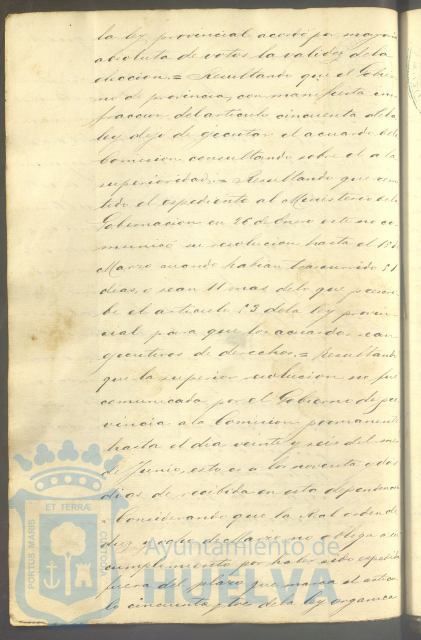 la ley provincial acordó por mayoria
absoluta de votos la validez de la
eleccion.= Resultando que el Gobier
no de provincia, con manifiesta in
fraccion del articulo cincuenta de la
ley dejo de ejecutar el acuerdo de la
Comision consultando sobre el a la
superioridad.= Resultando que remi
tido el expediente al Ministerio de la
Gobernacion en 26 de Enero este no co
municó su resolucion hasta el 18 de
Marzo cuando habian trascurrido 51
dias, o sean 11 mas de lo que prescri
be el articulo 53 de la ley provin
cial para que los acuerdos sean
ejecutivos de derecho.= Resultando
que la superior resolucion no fue
comunicada por el Gobierno de pro
vincia a la Comision permanente
hasta el dia veinte y seis del mes
de Junio, esto es a los noventa y dos
dias de recibida en esta dependencia
Considerando que la Real orden de
diez y ocho de Marzo no obliga a su
cumplimiento por haber sido expedida
fuera del plazo que marca el articu
lo cincuenta y tres de la ley organica
PORTUS MARIS
ET TERRÆ
CUSTODIA
Ayuntamiento de
HUELVA